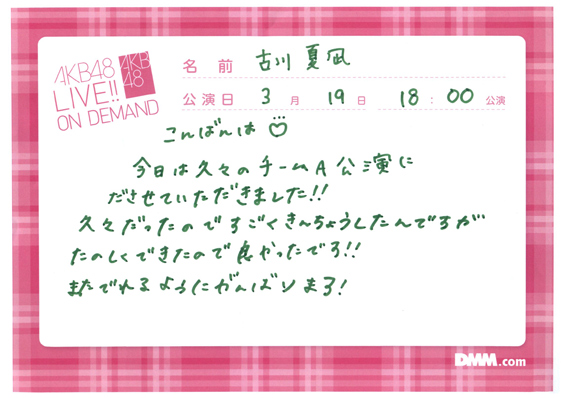 AKB48
LIVE!!
ON DEMAND
AKB
48
名前 古川夏凪
公演日 3月 19日 18:00 公演
こんばんは
今日は久々のチームA公演に
ださせていただきました!!
久々だったのですごくきんちょうしたんですが
たのしくできたので良かったです!!
またでれるようにがんばります!
DMM.com